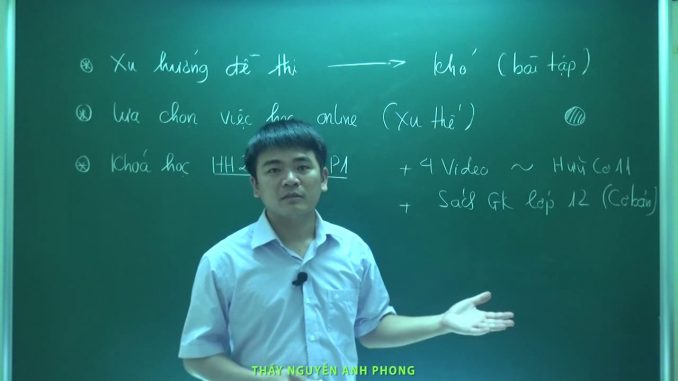 Xu hướng đề thi → khó (bài tập)
Lựa chọn việc học online (Xu thế)
Khoá học HH P1 + 4 Video ~ Hữu Cơ 11
+ Sách Gk lớp 12 (Cơ bản)
THẦY NGUYỄN ANH PHONG